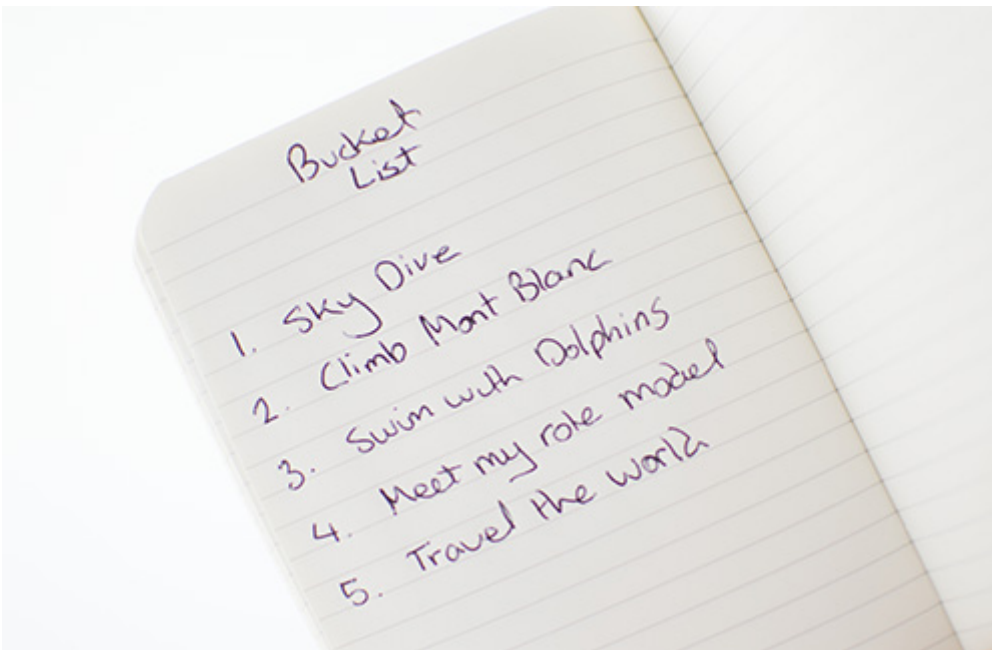 Bucket
List
1. Sky Dive
2. Climb Mont Blanc
3. Swim with Dolphins
4. Meet my role model
5. Travel the world